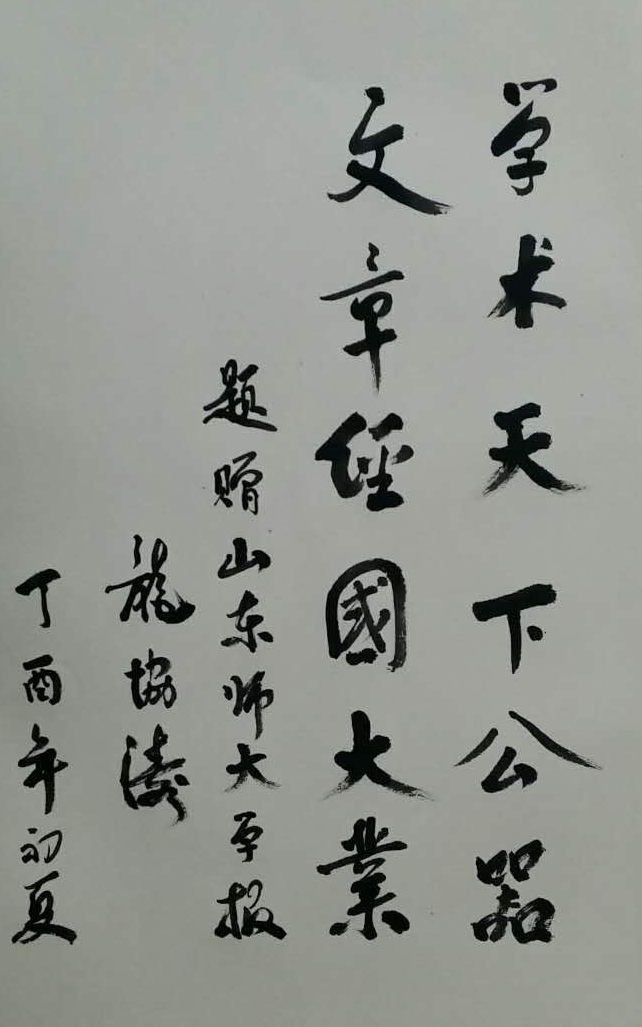 学术天下公器
文章經國大業
题赠山东师大学报
龍協濤
丁酉年初夏